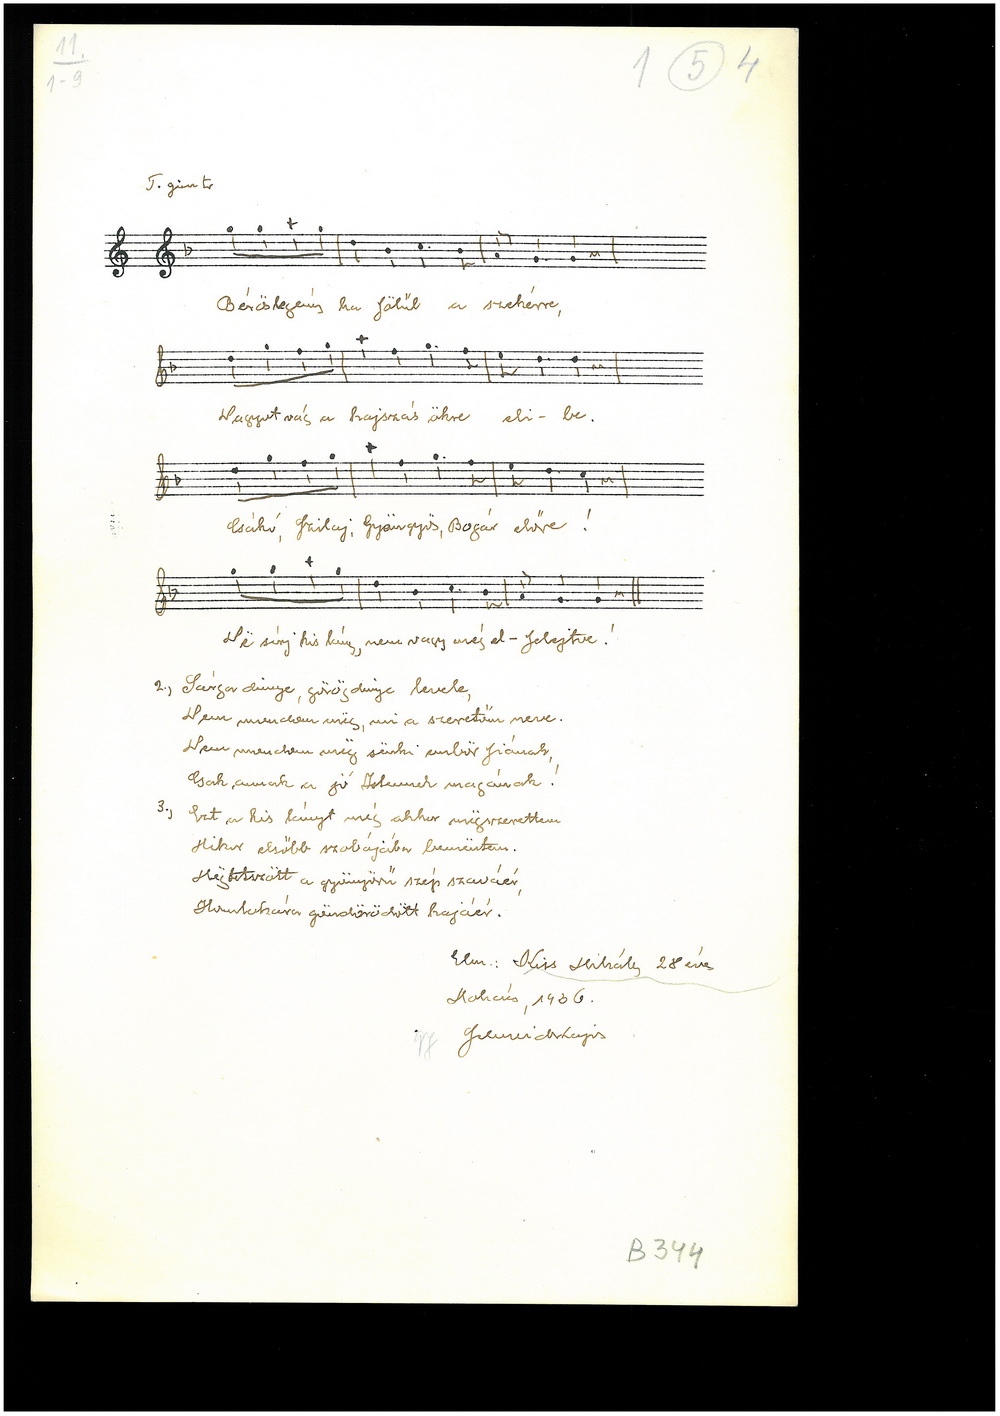 11.
1-9
1 5 4
T. giusto
Béröslegény ha fölül a szekérre,
Nagyot vág a kajszás ökre eli-be.
Csákó, Szilaj, Gyöngyös, Bogár előre!
Në sírj kis lány, nem vagy még el-felejtve!
2., Sárga dinnye, görögdinnye levele,
Nem mondom mëg, mi a szeretőm neve.
Nem mondom mëg sënki embör fiának,
Csak annak a jó Istennek magának!
3., Ezt a kis lányt még akkor mëgszerettem
Mikor elsőbb szobájába bemëntem.
Mëgtetszött a gyönyörű szép szaváér,
Homlokára göndörödött hajáér.
Elm.: Kiss Mihály 28 éves
Mohács, 1936.
B344